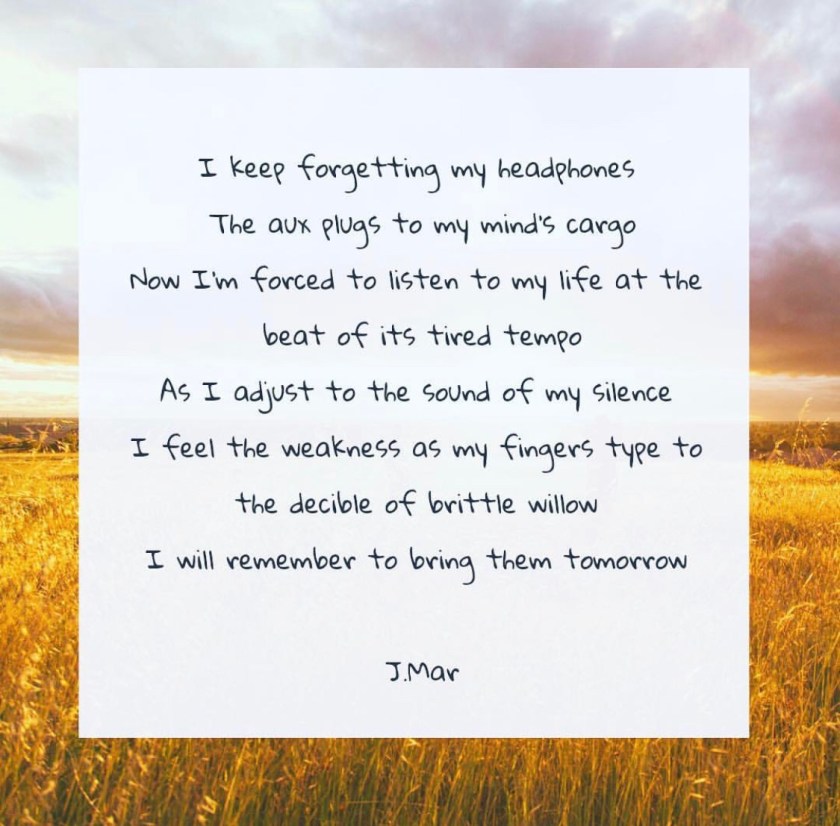 I keep forgetting my headphones
The aux plugs to my mind's cargo
Now I'm forced to listen to my life at the
beat of its tired tempo
As I adjust to the sound of my silence
I feel the weakness as my fingers type to
the decible of brittle willow
I will remember to bring them tomorrow
J.Mar